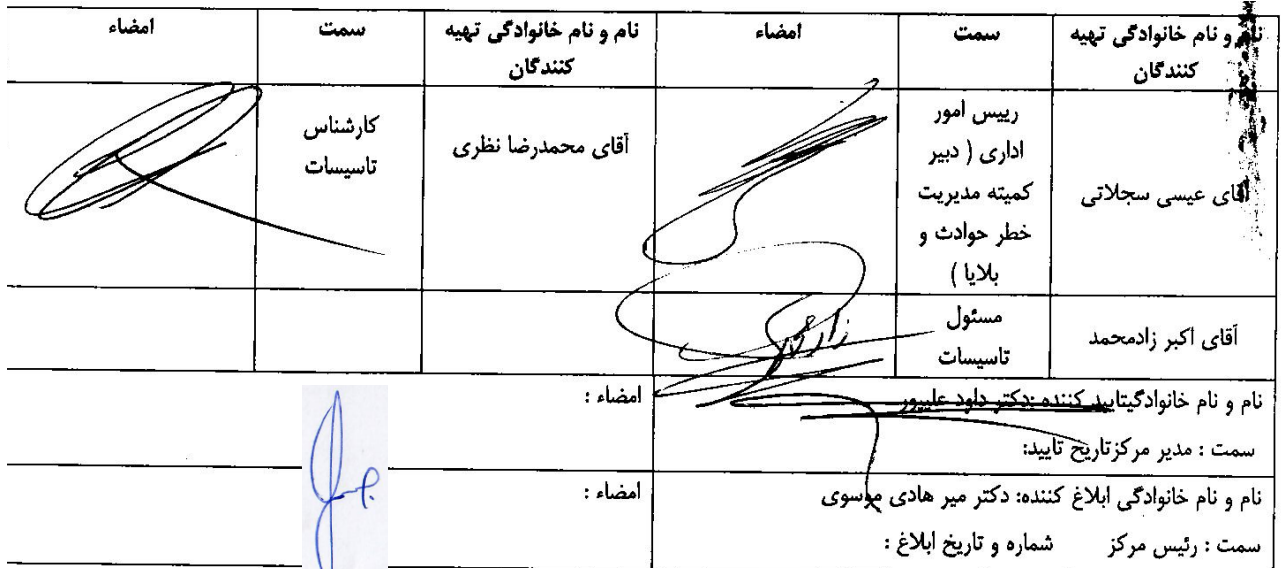 نام و نام خانوادگی تهیه کنندگان	سمت	امضاء	نام و نام خانوادگی تهیه کنندگان	سمت	امضاء
آقای عیسی سجلاتی	رییس امور اداری ( دبیر کمیته مدیریت خطر حوادث و بلایا )		آقای محمدرضا نظری	کارشناس تاسیسات
آقای اکبر زادمحمد	مسئول تاسیسات
نام و نام خانوادگیتایید کننده :دکتر داود علیپور	امضاء :
سمت : مدیر مرکزتاریخ تایید:
نام و نام خانوادگی ابلاغ کننده: دکتر میر هادی موسوی	امضاء :
سمت : رئیس مرکز	شماره و تاریخ ابلاغ :